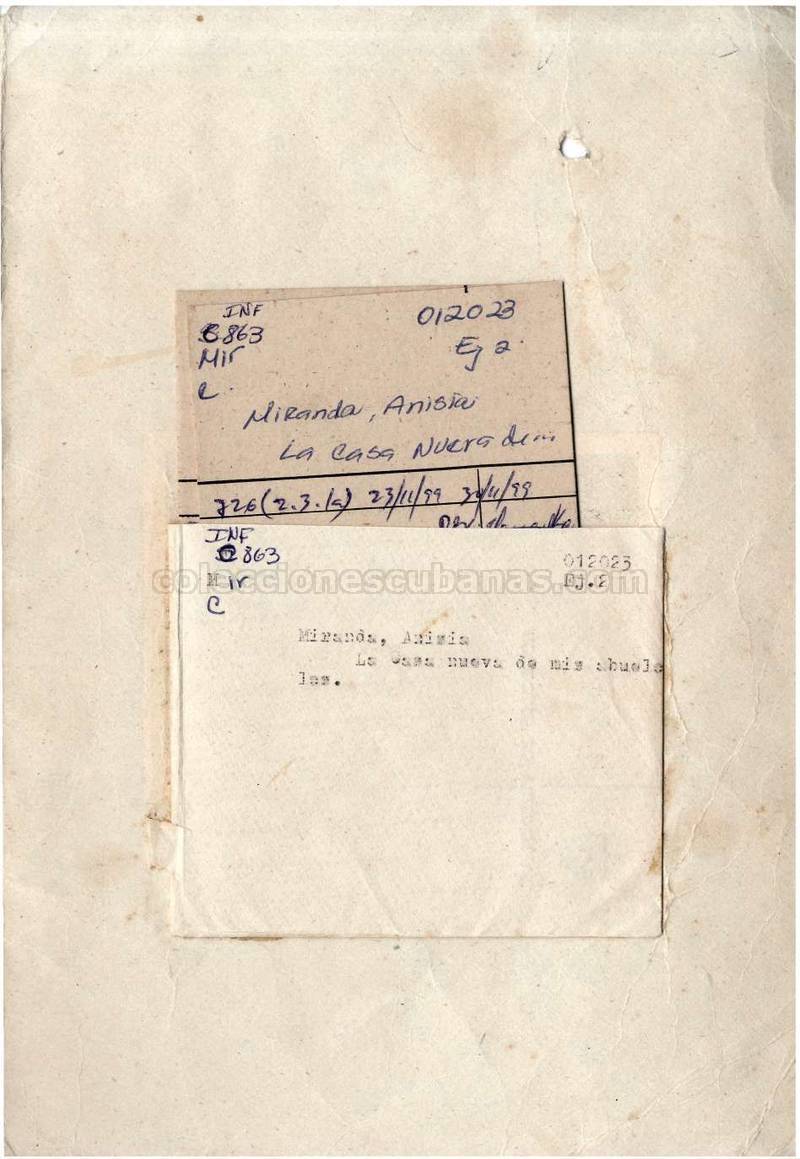 INF
C863
Mir
C.
012023
Ej 2.
Miranda, Anisia
La Casa Nueva de m
726 (2.3./9) 23/11/99 30/11/99
INF
C863
Mir
C
012023
Ej.2
coleccionescubanas.com
Miranda, Anisia
La Casa nueva de mis abuelo
les.